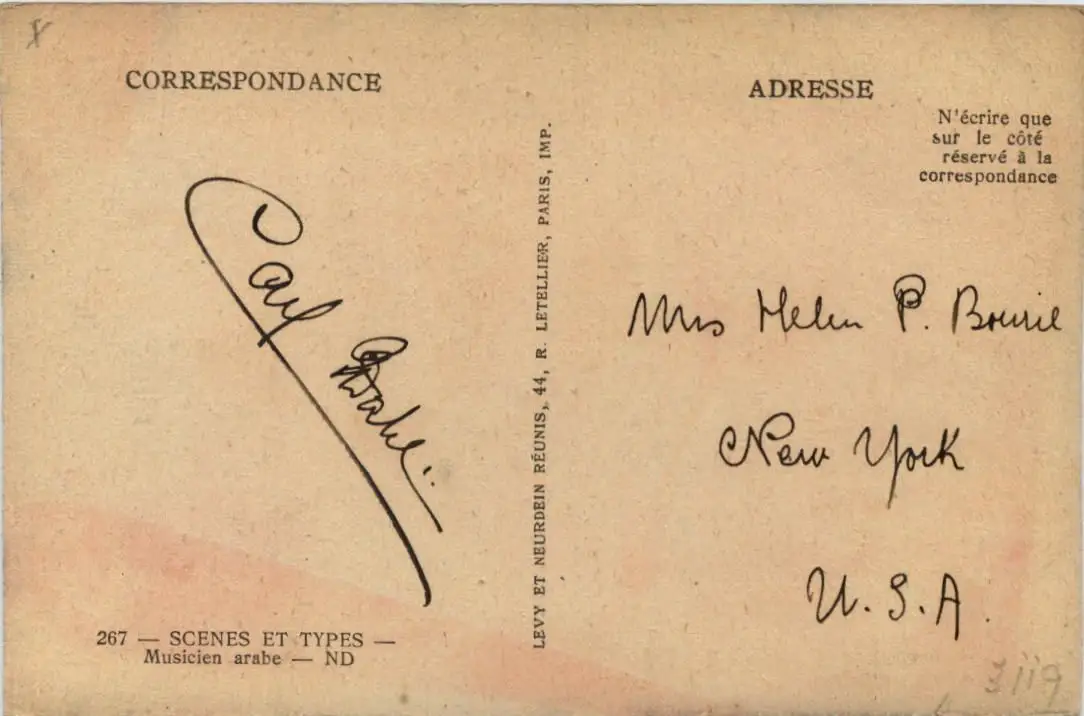 X
CORRESPONDANCE
ADRESSE
N'écrire que
sur le côté
réservé à la
correspondance
LEVY ET NEURDEIN RÉUNIS, 44, R. LETELLIER, PARIS, IMP.
Mrs Helen P.
New York
U.S.A.
267 — SCENES ET TYPES —
Musicien arabe — ND